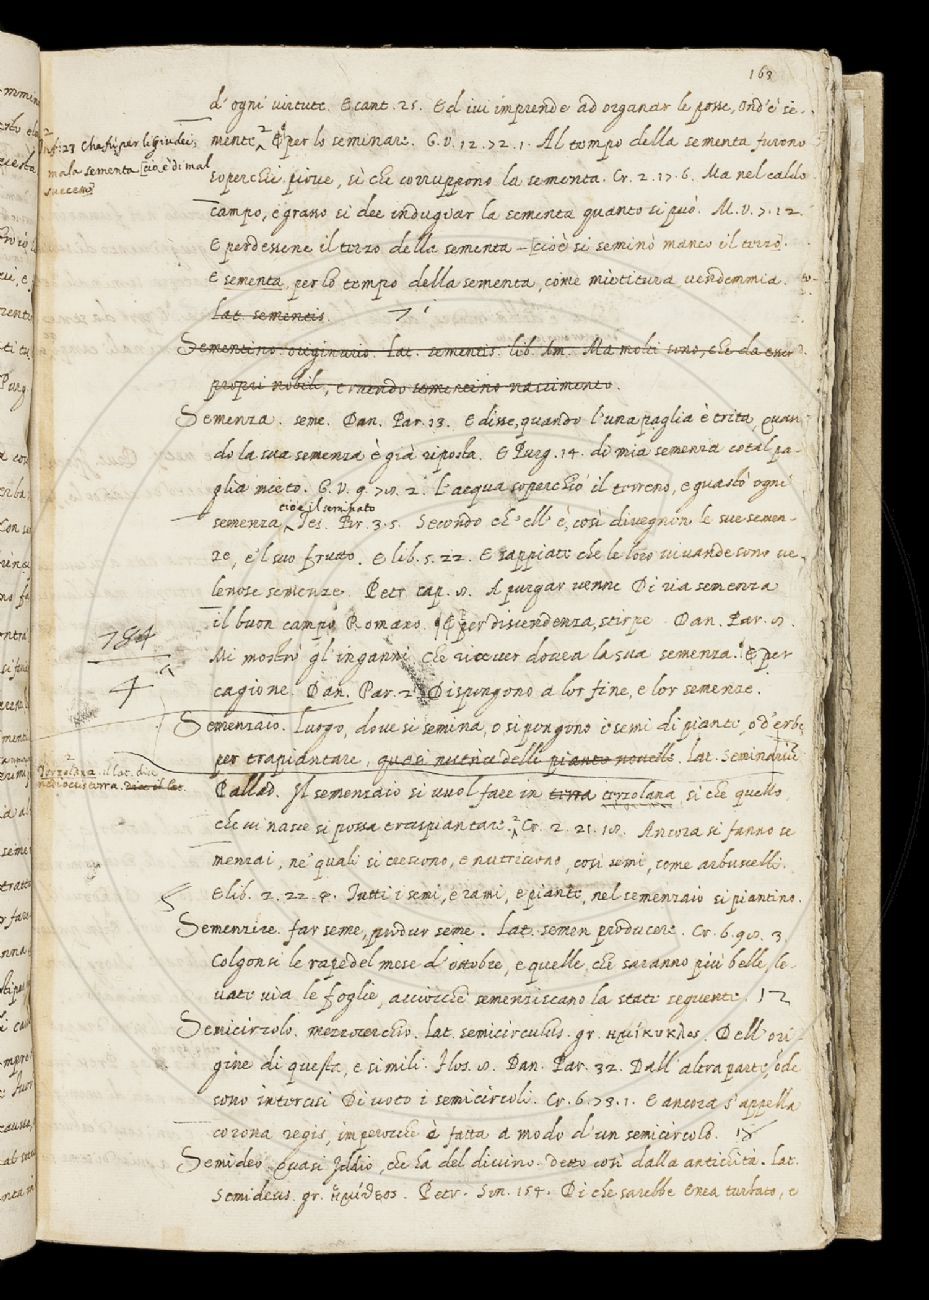 163
d'ogni virtute. E cant. 25. Ed ivi imprende ad organar le posse, Ond'è se-
mente 2 E per lo seminare. G. V. 12. 72. 1. Al tempo della sementa furono
2 Inf. 23 Che fu per li Giudei
mala sementa [cioè di mal
successo
soperchie piove, sì che corruppono la sementa. Cr. 2. 17. 6. Ma nel caldo
campo, e grasso si dee indugiar la sementa quanto si può. M. V. 7. 12.
E perdessene il terzo della sementa – [cioè si seminò manco il terzo].
E sementa, per lo tempo della sementa, come mietitura vendemmia.
Lat. sementis. 7
Sementino originario. Lat. sementis. lib. Am. Ma molti sono, che da esser
propri nobili, e sementino nascimento.
Semenza. seme. Dan. Par. 13. E disse, quando l'una paglia è trita, Quan
do la sua semenza è già riposta. E Purg. 14. di mia semenza cotal pa-
glia mieto. G. V. 9. 70. 2. L'acqua soperchiò il terreno, e guastò ogni
cioè il seminato
semenza, Tes. Br. 3. 5. Secondo ch'ell'è, così divegnon le sue semen-
ze, e'l suo frutto. E lib. 5. 22. E sappiate che le loro vivande sono ve-
lenose semenze. Petr. cap. 10. A purgar venne Di ria semenza
il buon campo Romano. E per discendenza, stirpe. Dan. Par. 9.
Mi mostrò gl'inganni Che ricever dovea la sua semenza. E per
784
4
cagione. Dan. Par. 2. Dispongono a lor fine, e lor semenze.
Semenzaio. Luogo, dove si semina, o si pongono i semi di piante, o d'erbe
per trapiantare, quasi nutrice delle piante novelle. Lat. Seminarium
2
Terzolana. il lat. dice
mediocris terra.
Pallad. Il semenzaio si vuol fare in terra terzolana, sì che quello,
che vi nasce si possa traspiantare. 2 Cr. 2. 21. 10. Ancora si fanno se
menzai, ne' quali si crescono, e nutricono, così semi, come arbuscelli.
E lib. 2. 22. 4. Tutti i semi, e rami, e piante, nel semenzaio si piantino.
Semenzire. far seme, produr seme. Lat. semen producere. Cr. 6. 90. 3.
Colgonsi le rape del mese d'ottobre, e quelle, che saranno più belle, le-
vate via le foglie, acciocchè semenziscano la state seguente. 12
Semicirzolo. mezzocerchio. Lat. semicirculus. gr. ημίκυκλος. Dell'ori-
gine di questa, e simili. Flos. 10. Dan. Par. 32. Dall'altra parte, onde
sono intercisi Di voto i semicircoli. Cr. 6. 73. 1. E ancora s'appella
corona regis, imperocchè è fatta a modo d'un semicircolo. 18
Semideo. Quasi Iddio, che ha del divino. Detto così dalla antichità. Lat.
Semideus. gr. ημίθεος. Petr. Son. 154. Di che sarebbe Enea turbato, e